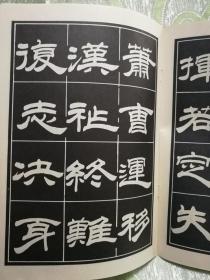 揮若定失
蕭曹運移
漢祚終難
復志决身